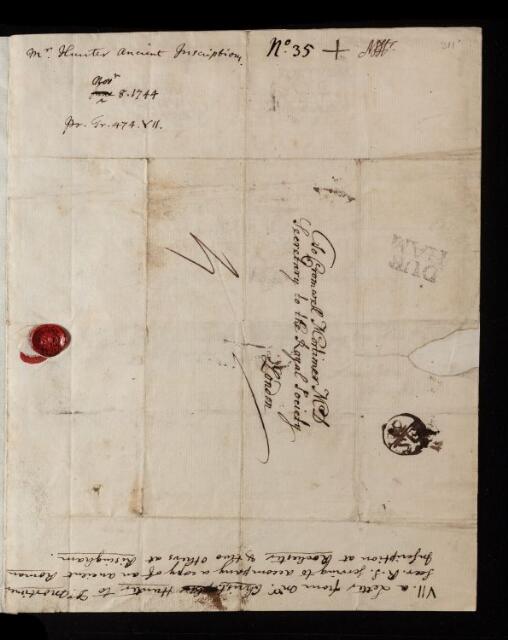 Mr. Hunter Ancient Inscriptions.
No. 35 +
Novr
8. 1744
Pr. Tr. 474. VII.
To Cromwel Mortimer MD
Secretary to the Royal Society
London
DUR
HAM
VII. a Letter from Mr. Christ. Hunter to Dr. Mortimer
Secr. R. S. serving to accompany a copy of an ancient Roman
Inscription at Rochester & two others at Risingham.